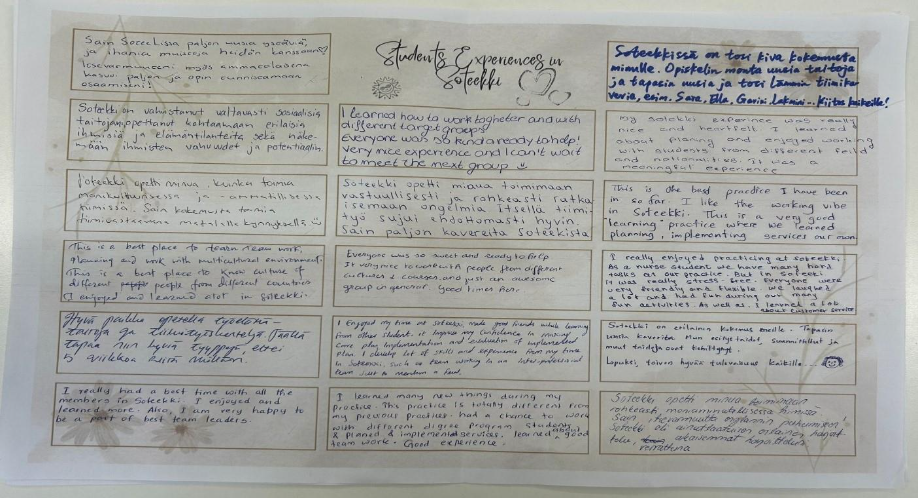 Students Experiences in
Soteekki
Sain Soteekissa paljon uusia ystäviä,
ja ihania muistoja heidän kanssaan!
Itsevarmuuteni myös ammatillisena
kasvoi paljon ja opin
osaamiseni!
Soteekki on vahvistanut valtavasti sosiaalisia
taitoja, opettanut kohtaamaan erilaisia
ihmisiä ja elämäntilanteita sekä näke-
mään ihmisten vahvuudet ja potentiaalin
Soteekki opetti minua, kuinka toimia
monikulttuurisessa ja -ammatillisessa
tiimissä. Sain kokemusta toimia
tiimivastaavana matalalla kynnyksellä
This is a best place to learn team work,
planning and work with multicultural environment.
This is a best place to know culture of
different people from different countries
I enjoyed and learned alot in soteekki.
Hyvä paikka opetella työelämä-
taitoja ja tiimityöskentelyä. Täällä
tapaa niin hyviä tyyppejä, ettei
5 viikkoa riitä
I really had a best time with all the
members in Soteekki. I enjoyed and
learned more. Also, I am very happy to
be a part of best team leaders
I learned how to work togheter and with
different target groups!
Everyone was so kind and ready to help!
very nice experience and I can't wait
to meet the next group
Soteekki opetti minua toimimaan
vastuullisesti ja rohkeasti ratka-
isemaan ongelmia itsellä tiimi-
työ sujui ehdottomasti hyvin
Sain paljon kavereita soteekista
Everyone was so sweet and ready to help
It very nice to work with people from different
cultures & courses and just an awesome
group in general. Good times
I Enjoyed my time at soteekki, made good friends while learning
from other students, it improve my confidence in making
care plan, implementation and evaluation of implemented
plan. I develop lot of skills and experience from my time
in soteekki, such as team working in an inter-professional
team just to mention a few.
I learned many new things during my
practice. This practice is totally different from
my previous practices. had a chance to work
with different digree program students
& planed & implemented services. learned about good
team work. Good experience.
Soteekkissä on tosi kiva kokemusta
minulle. Opiskelin monta uusia taitoja
ja tapasin uusia ja tosi lämmin tiimika
vereia, esim. Sara, Ella, Lakmini... Kiitos kaikille!
My soteekki experince was really
nice and heartfelt. I learned
about planing and enjoyed working
with students from different feild
and nationalities. it was a
meaningful experience
This is the best practice I have been
in so far. I like the working vibe
in Soteekki. This is a very good
learning practice where we learned
planning, implementing services our own
I really enjoyed practicing at soteekki.
As a nurse student we have many hard
wards as our practice. But in Soteekki
it was really stress-free. Everyone were
very friendly and flexible. We laughed
a lot and had fun during our many
fun activities. As well as, I learned a lot
about customer service
Soteekki on erilainen kokemus meille. Tapasin
uusia kavereita. Mun esitystaidot, suunnittelut ja
muut taidoja ovat kehittynyt.
Lopuksi, toivon hyvää tulevaisuus kaikille
Soteekki opetti minua toimimaan
rohkeasti, monammatillisessa tiimissä
Sain itsevarmuutta englannin puhumiseen!
Soteekki oli ainutlaatuinen erilainen harjoit
telu, aikaisemmat harjoittelut
verrattuna